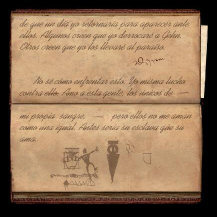 de que un día yo retornaría para aparecer ante
ellos. Algunos creen que yo derrocaré a John.
Otros creen que yo los llevaré al paraíso.
No sé cómo enfrentar esto. Yo misma lucho
contra ello. Amo a esta gente, los únicos de
mi propia sangre, pero ellos no me aman
como una igual. Antes sería su esclava que su
ama.